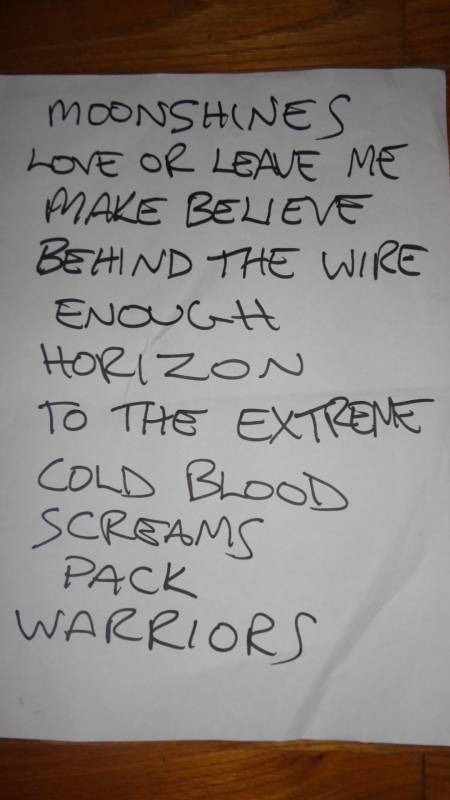 MOONSHINES
LOVE OR LEAVE ME
MAKE BELIEVE
BEHIND THE WIRE
ENOUGH
HORIZON
TO THE EXTREME
COLD BLOOD
SCREAMS
PACK
WARRIORS